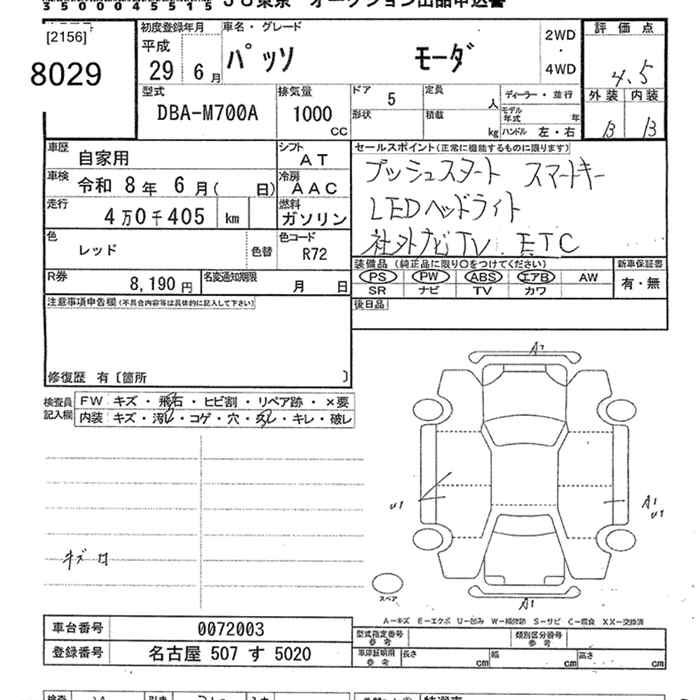 35000045515 JU東京 オークション出品申込書
[2156]
8029
初度登録年月
平成
29年 6月
車名・グレード
パッソ モーダ
2WD
・
4WD
評価点
4.5
外装 内装
B B
型式
DBA-M700A
排気量
1000
CC
ドア 5
形状
定員 人
積載 kg
ディーラー・並行
モデル年式 年
ハンドル 左・右
車歴 自家用
シフト AT
車検 令和 8年 6月( 日)
冷房 AAC
走行 4万0千405 km
燃料 ガソリン
色 レッド 色替
色コード R72
R券 8,190円
名変通知期限 月 日
セールスポイント(正常に機能するものに限ります)
プッシュスタート スマートキー
LEDヘッドライト
社外ナビTV ETC
装備品(純正品に限り○をつけてください)
PS PW ABS エアB AW
SR ナビ TV カワ
新車保証書
有・無
後日品
注意事項申告欄(不具合内容等は具体的に記入して下さい)
修復歴 有〔箇所 〕
検査員記入欄
FW キズ・飛石・ヒビ割・リペア跡・×要
内装 キズ・汚れ・コゲ・穴・スレ・キレ・破レ
キズ
A1
U1
A1
U1
A1
スペア
A-キズ E-エクボ U-凹み W-補修跡 S-サビ C-腐食 XX-交換済
車台番号 0072003
登録番号 名古屋 507 す 5020
型式指定番号参考
類別区分番号参考
車庫証明用参考 長さ cm 幅 cm 高さ cm